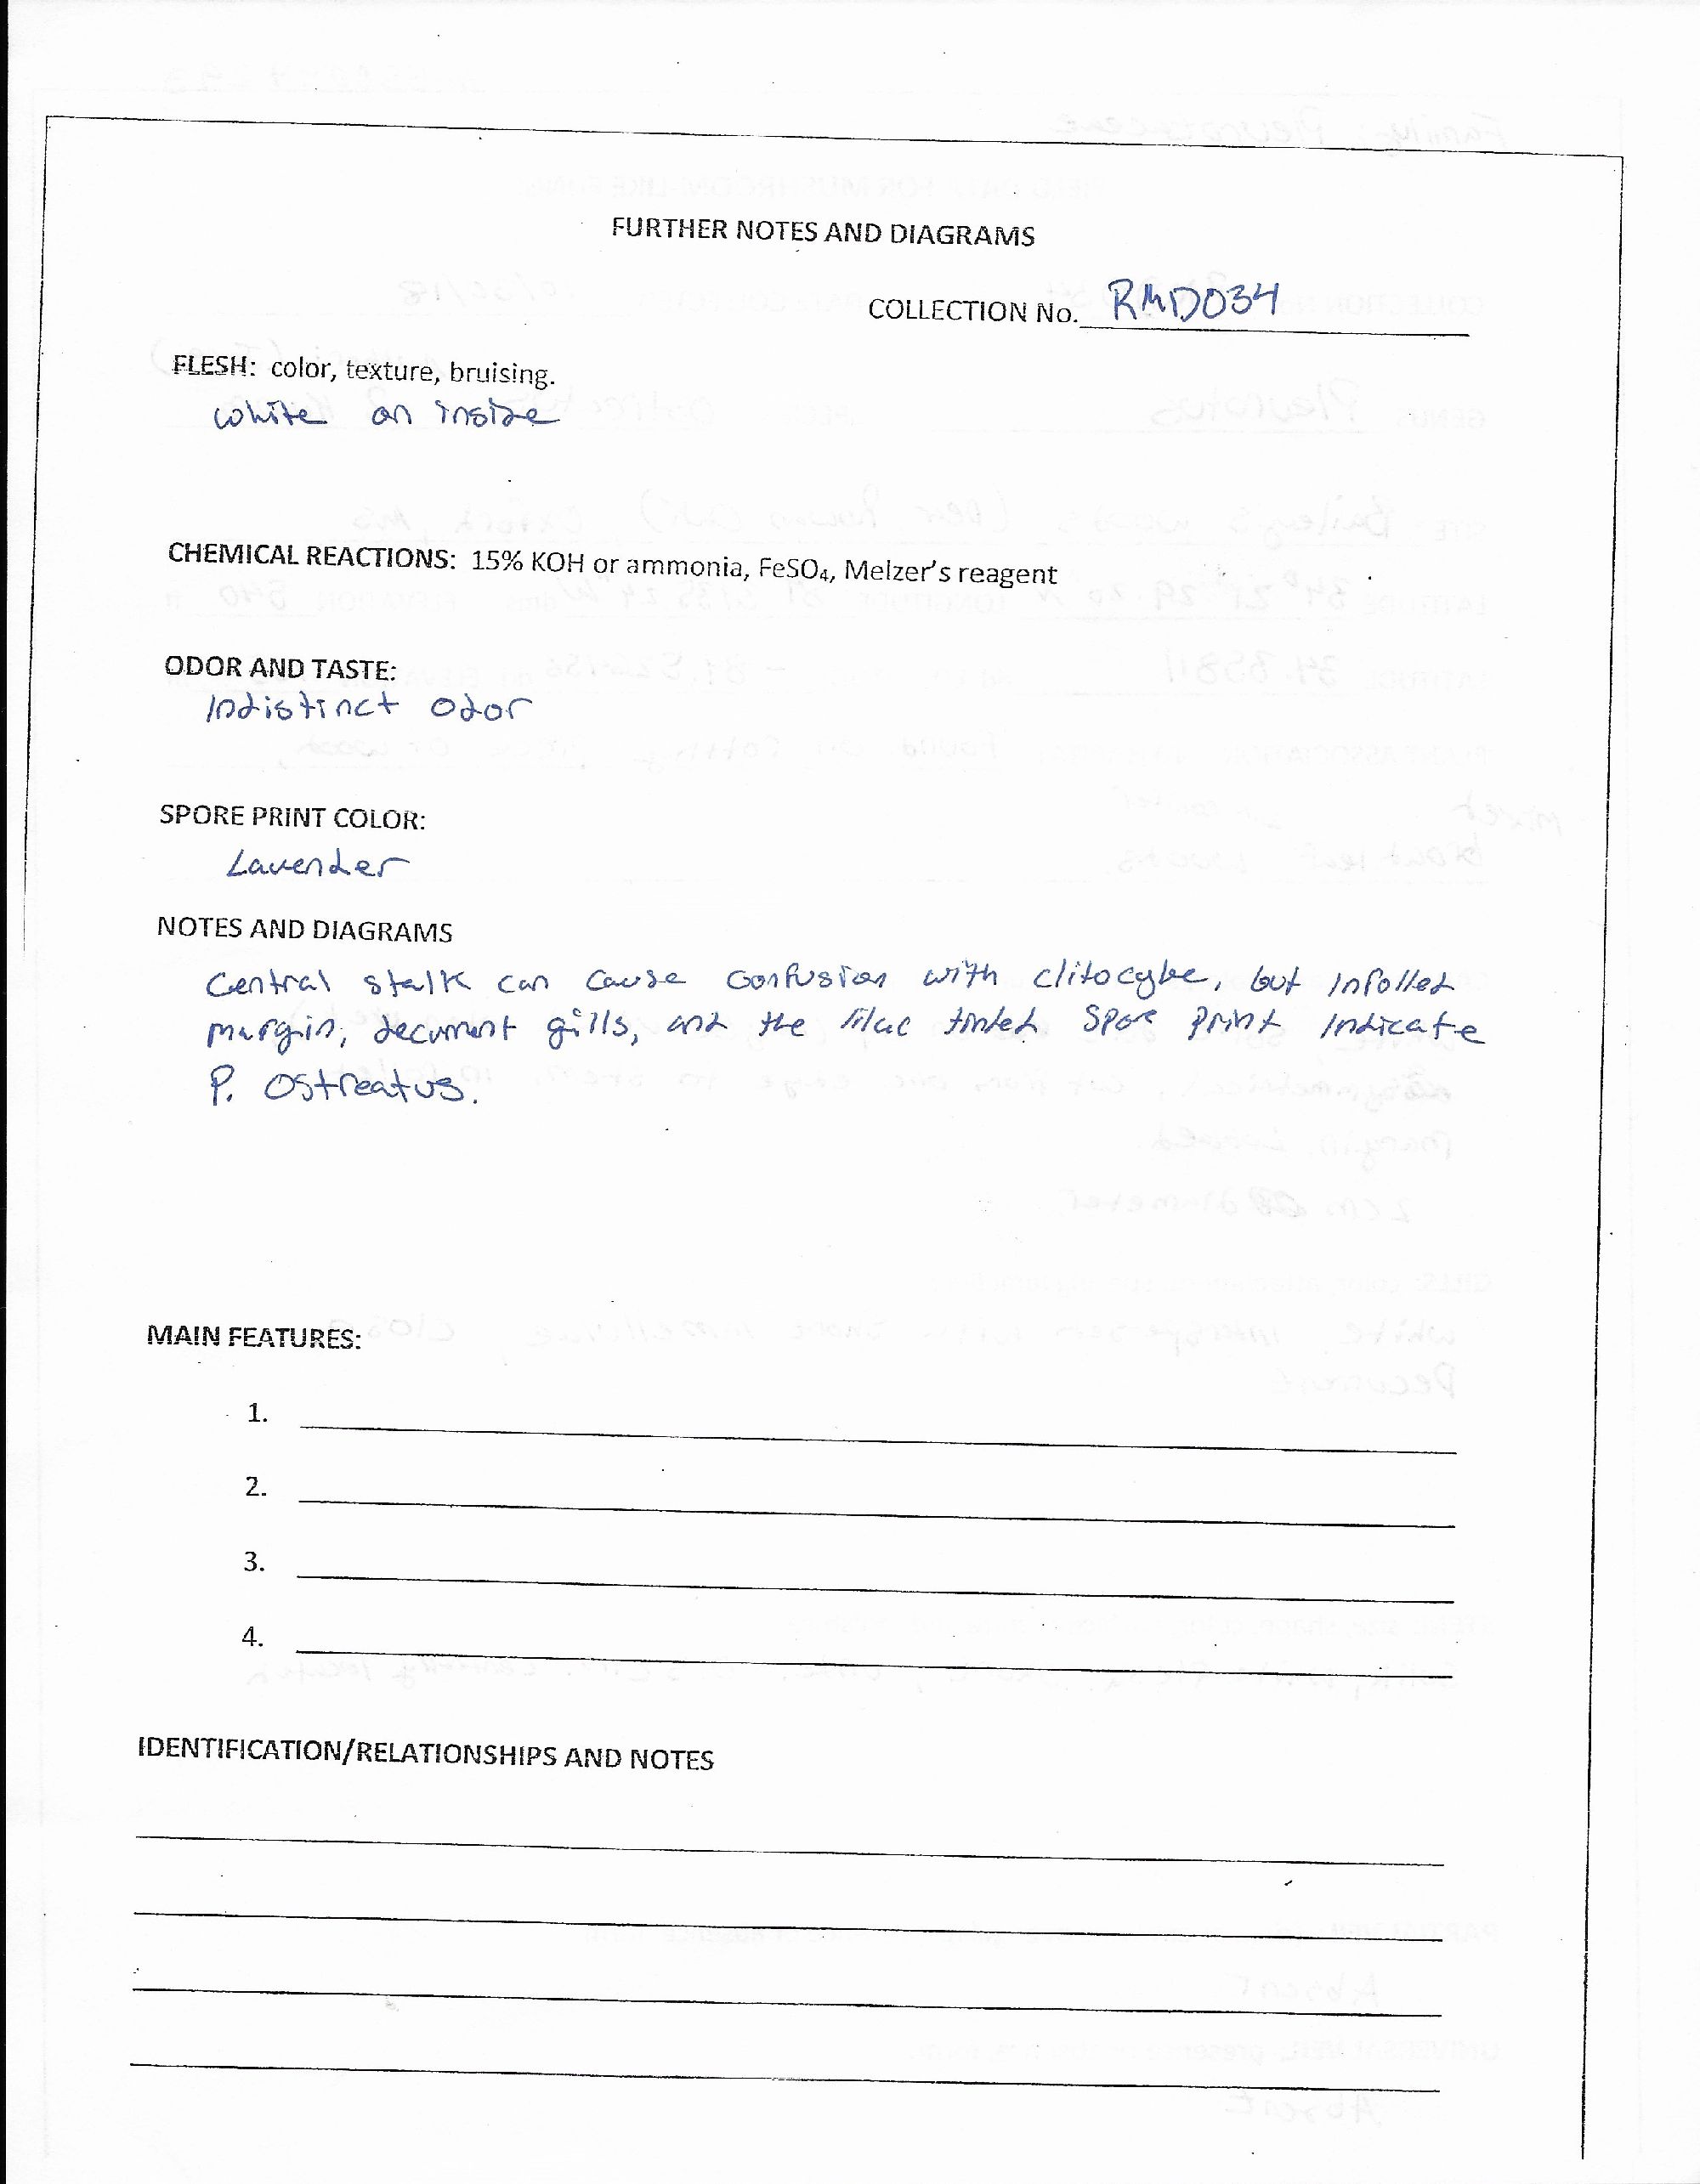 FURTHER NOTES AND DIAGRAMS
COLLECTION No. RMD034
FLESH: color, texture, bruising.
white on inside
CHEMICAL REACTIONS: 15% KOH or ammonia, FeSO₄, Melzer's reagent
ODOR AND TASTE:
Indistinct odor
SPORE PRINT COLOR:
Lavender
NOTES AND DIAGRAMS
Central stalk can cause confusion with clitocybe, but inrolled
margin, decurrent gills, and the lilac tinted spore print indicate
P. Ostreatus.
MAIN FEATURES:
1.
2.
3.
4.
IDENTIFICATION/RELATIONSHIPS AND NOTES